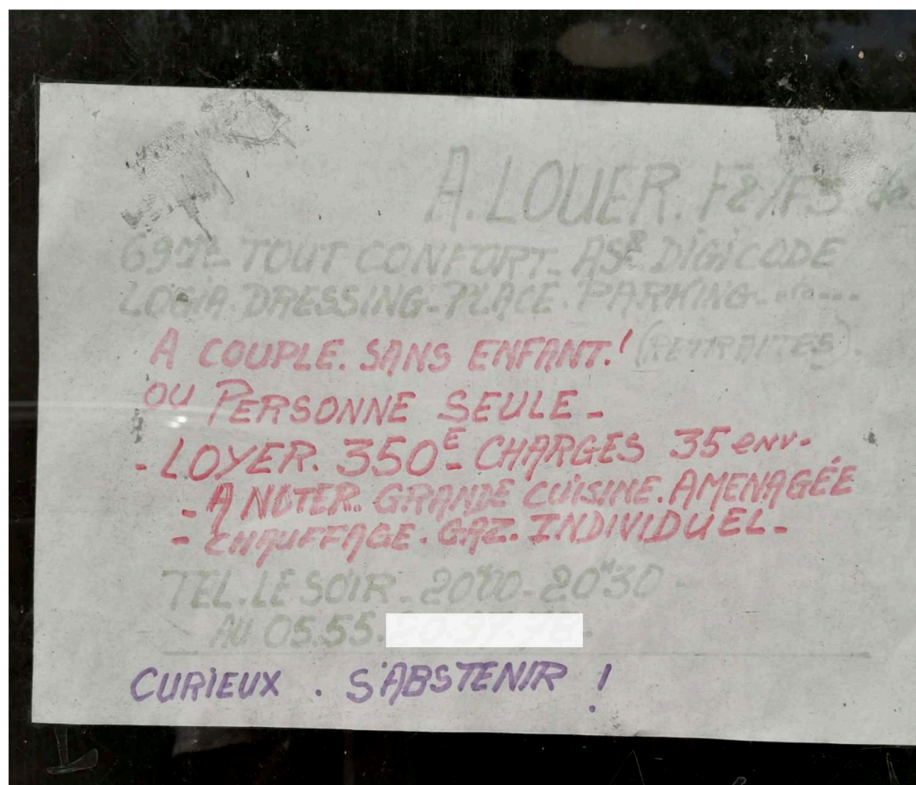 A.LOUER. F2/F3
69M2 TOUT CONFORT. ASR. DIGICODE
LOGIA. DRESSING. PLACE. PARKING
A COUPLE. SANS ENFANT.! (RETRAITES).
OU PERSONNE SEULE -
- LOYER. 350E - CHARGES 35 env.
- A NOTER. GRANDE CUISINE. AMENAGÉE
- CHAUFFAGE. GAZ. INDIVIDUEL -
TEL. LE SOIR. 20H00 - 20H30 -
AU 05.55.
CURIEUX . S'ABSTENIR !